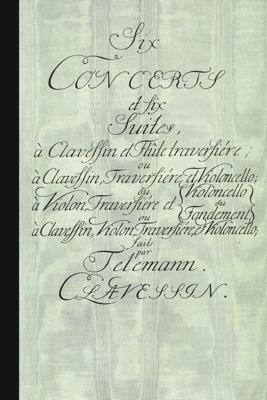 Six
CONCERTS
et six
Suites,
à Clavessin et Flûte traversière;
ou
à Clavessin, Traversière, et Violoncello;
ou
à Violon, Traversière et { Violoncello ou Fondement
ou
à Clavessin, Violon, Traversière, et Violoncello;
faits
par
Telemann.
CLAVESSIN.